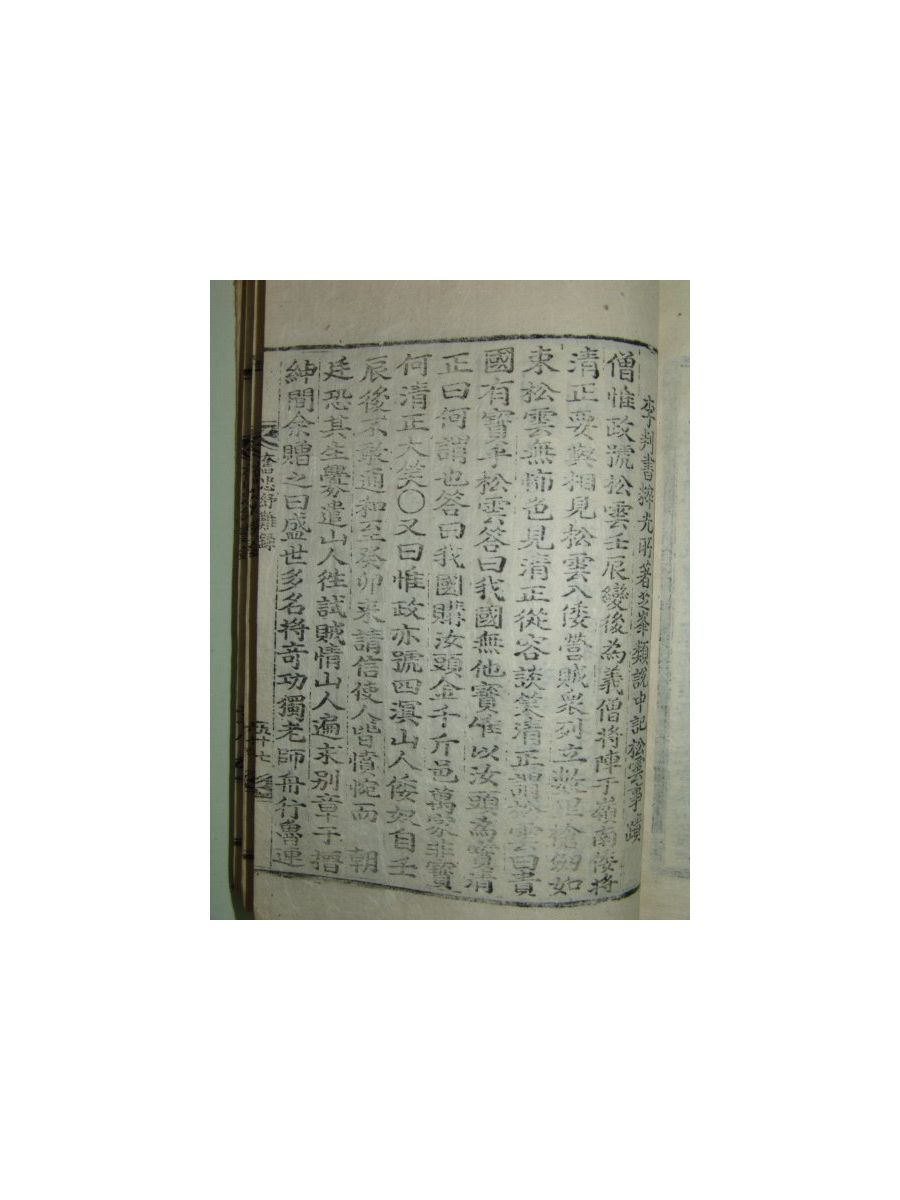 李判書睟光所著芝峯類說中記松雲事蹟
僧惟政號松雲壬辰變後為義僧將陣于嶺南倭將
清正要與相見松雲入倭營賊衆列立數里槍劒如
束松雲無怖色見清正從容談笑清正謂松雲曰貴
國有寶乎松雲答曰我國無他寶惟以汝頭為寶清
正曰何謂也答曰我國購汝頭金千斤邑萬家非寶
何清正大笑〇又曰惟政亦號四溟山人倭奴自壬
辰後不敢通和至癸卯來請信使人皆憤惋而 朝
廷恐其生釁遣山人徃試賊情山人遍求別章于搢
紳間余贈之曰盛世多名將竒功獨老師舟行魯連
奮忠紓難錄
五十七